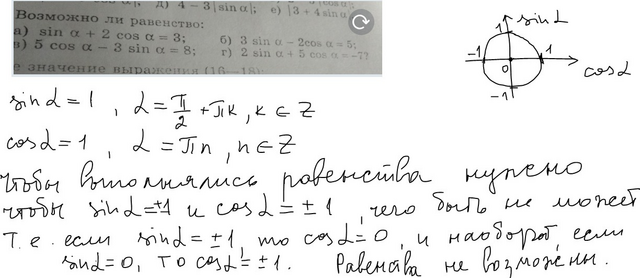 д) 4 − 3|sin α|; е) |3 + 4 sin α
Возможно ли равенство:
а) sin α + 2 cos α = 3; б) 3 sin α − 2cos α = 5;
в) 5 cos α − 3 sin α = 8; г) 2 sin α + 5 cos α = −7?
е значение выражения (16—18):
sin α
1
-1 0 1
cos α
-1
sin α = 1 , α = π/2 + πk, k ∈ Z
cos α = 1 , α = πn , n ∈ Z
чтобы выполнялись равенства нужно
чтобы sin α = ±1 и cos α = ± 1 , чего быть не может
Т.е. если sin α = ±1, то cos α = 0, и наоборот, если
sin α = 0, то cos α = ±1. Равенства не возможны.